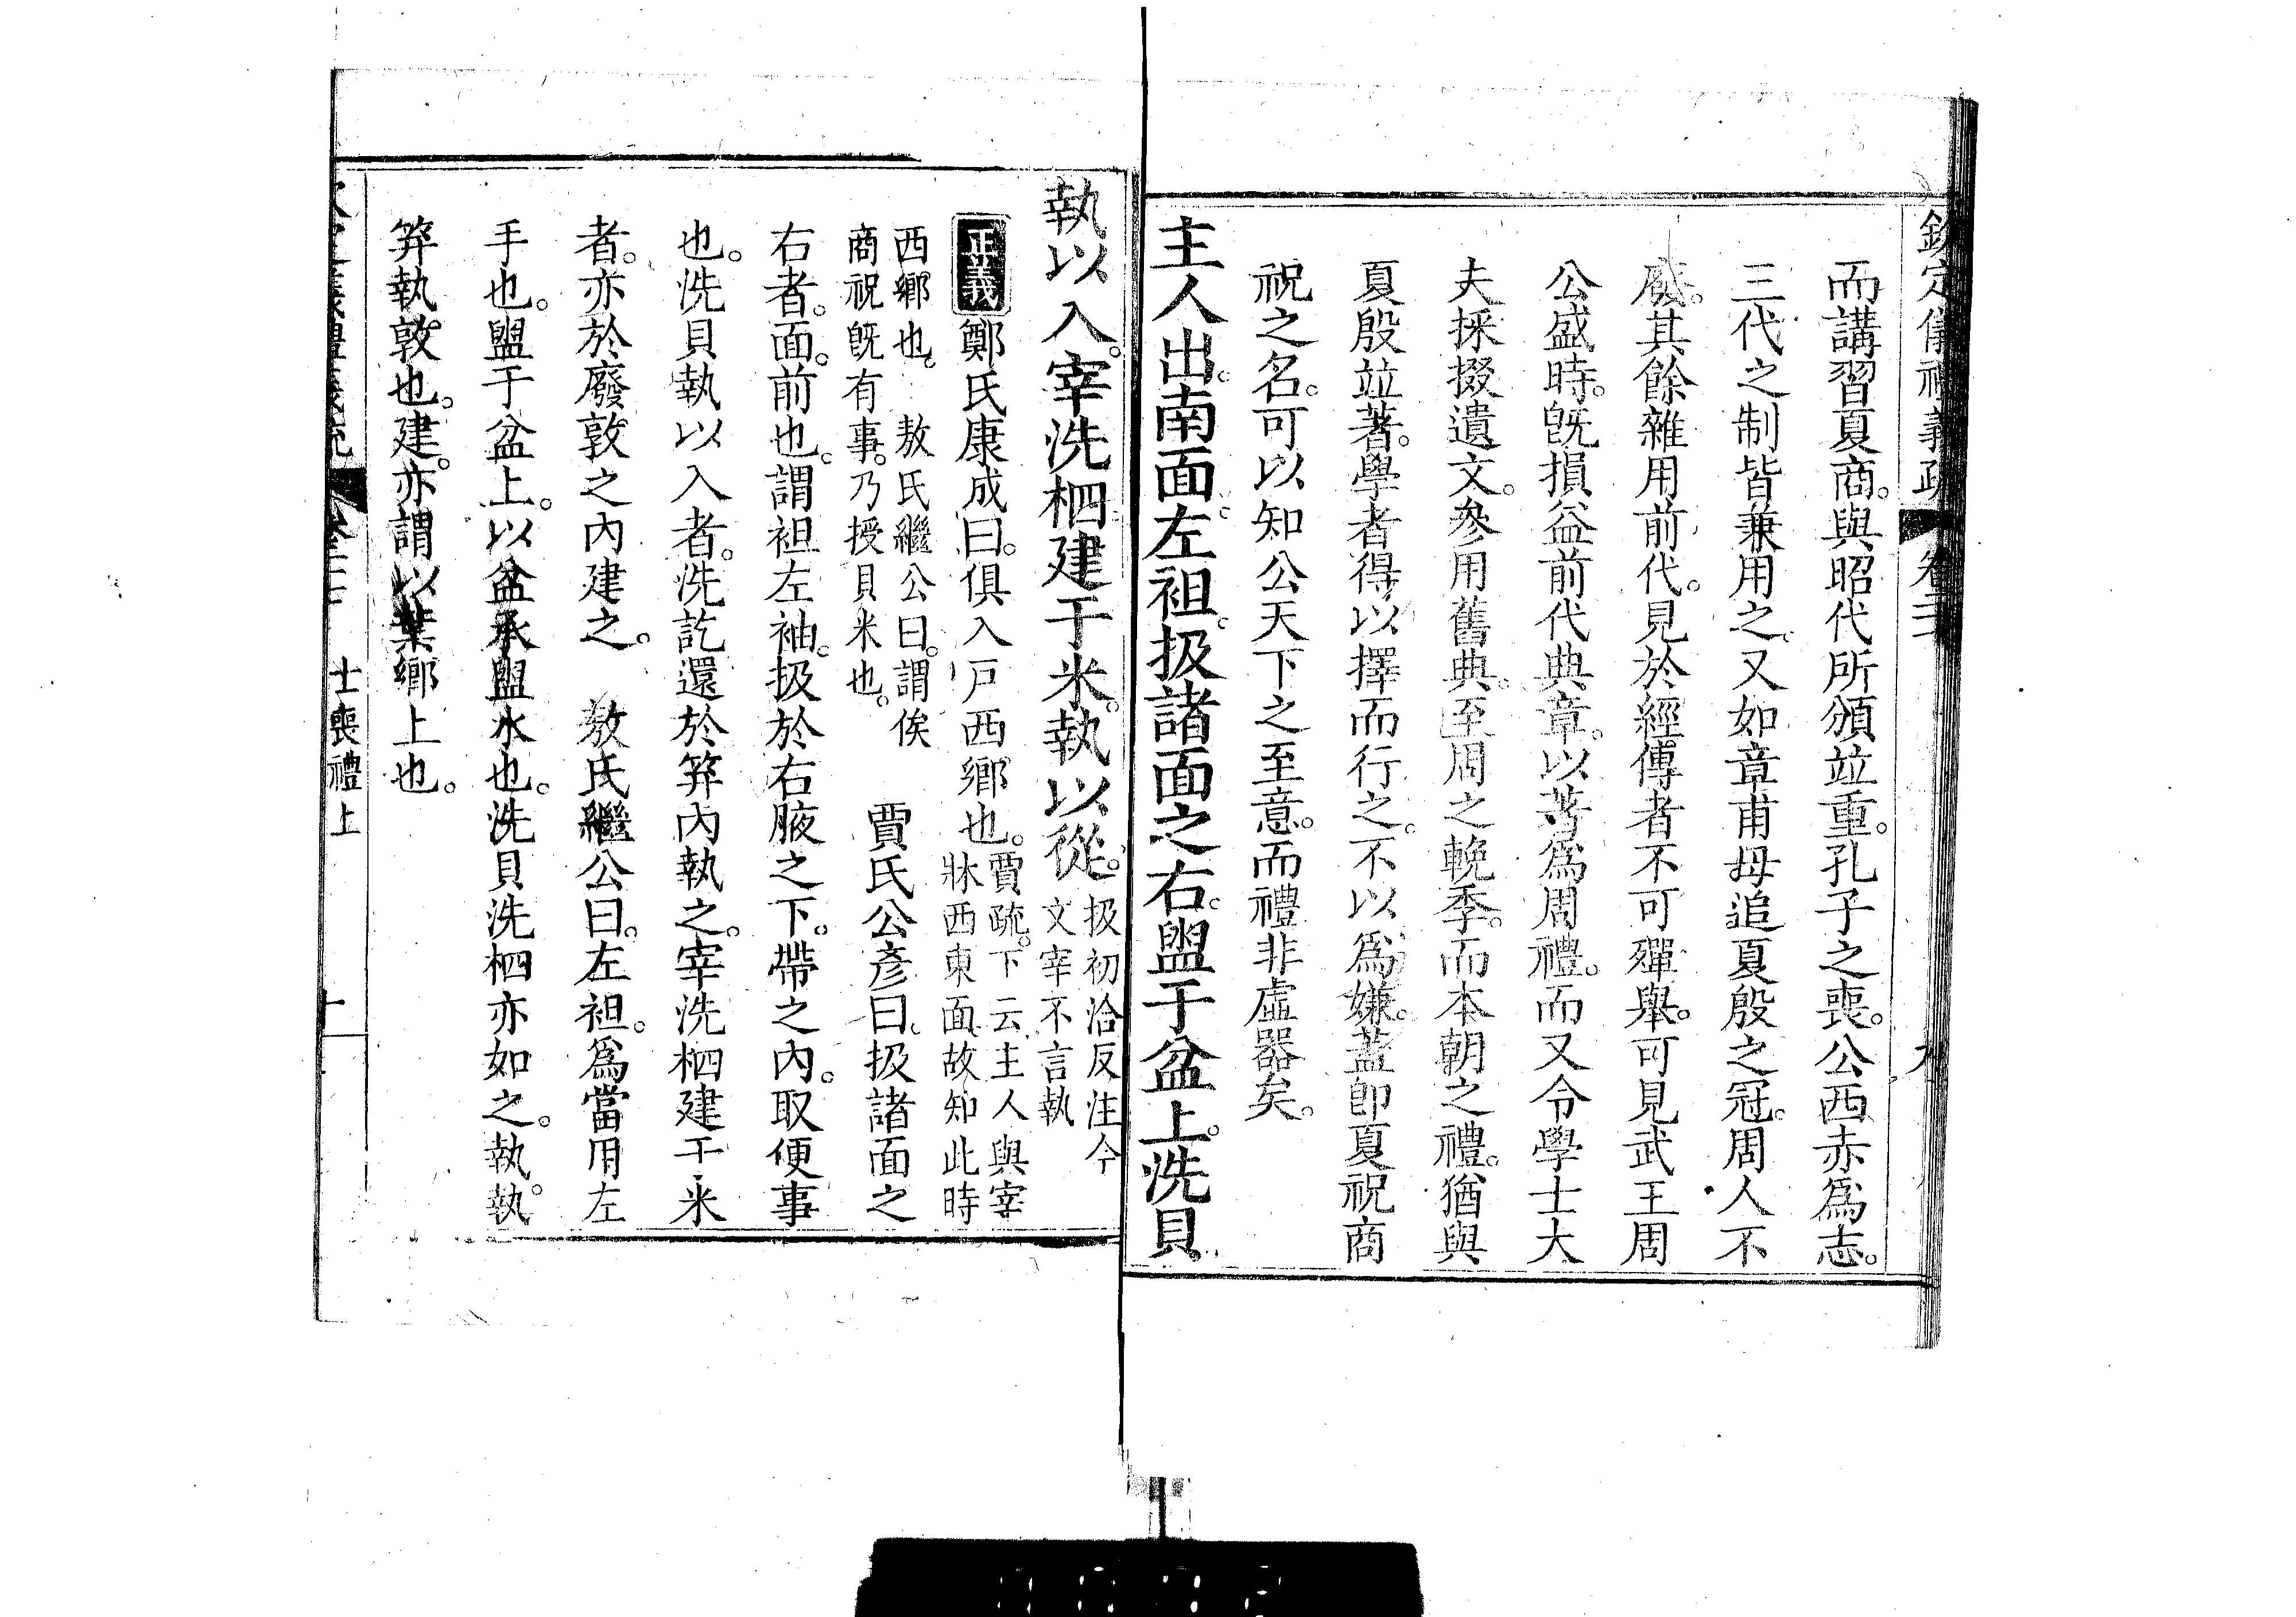 欽定儀禮義疏 卷二
而講習夏商。與昭代所頒竝重。孔子之喪。公西赤爲志。
三代之制皆兼用之。又如章甫毋追夏殷之冠。周人不
廢。其餘雜用前代。見於經傳者不可殫舉。可見武王周
公盛時。旣損益前代典章。以著爲周禮。而又令學士大
夫採掇遺文。參用舊典。至周之輓季。而本朝之禮。猶與
夏殷竝著。學者得以擇而行之。不以爲嫌。蓋卽夏祝商
祝之名。可以知公天下之至意。而禮非虛器矣。
主人出。南面。左袒。扱諸面之右。盥于盆上。洗貝
執以入。宰洗柶建于米。執以從。扱初洽反注今
文宰不言執
正義 鄭氏康成曰。俱入戶西鄉也。賈疏。下云主人與宰
牀西東面。故知此時
西鄉也。 敖氏繼公曰。謂俟
商祝旣有事。乃授貝米也。 賈氏公彥曰。扱諸面之
右者。面。前也。謂袒左袖。扱於右腋之下。帶之內。取便事
也。洗貝執以入者。洗訖還於笲內執之。宰洗柶建于米
者。亦於廢敦之內建之。 敖氏繼公曰。左袒。爲當用左
手也。盥于盆上。以盆承盥水也。洗貝洗柶亦如之。執。執
笲執敦也。建。亦謂以葉鄉上也。
士喪禮上